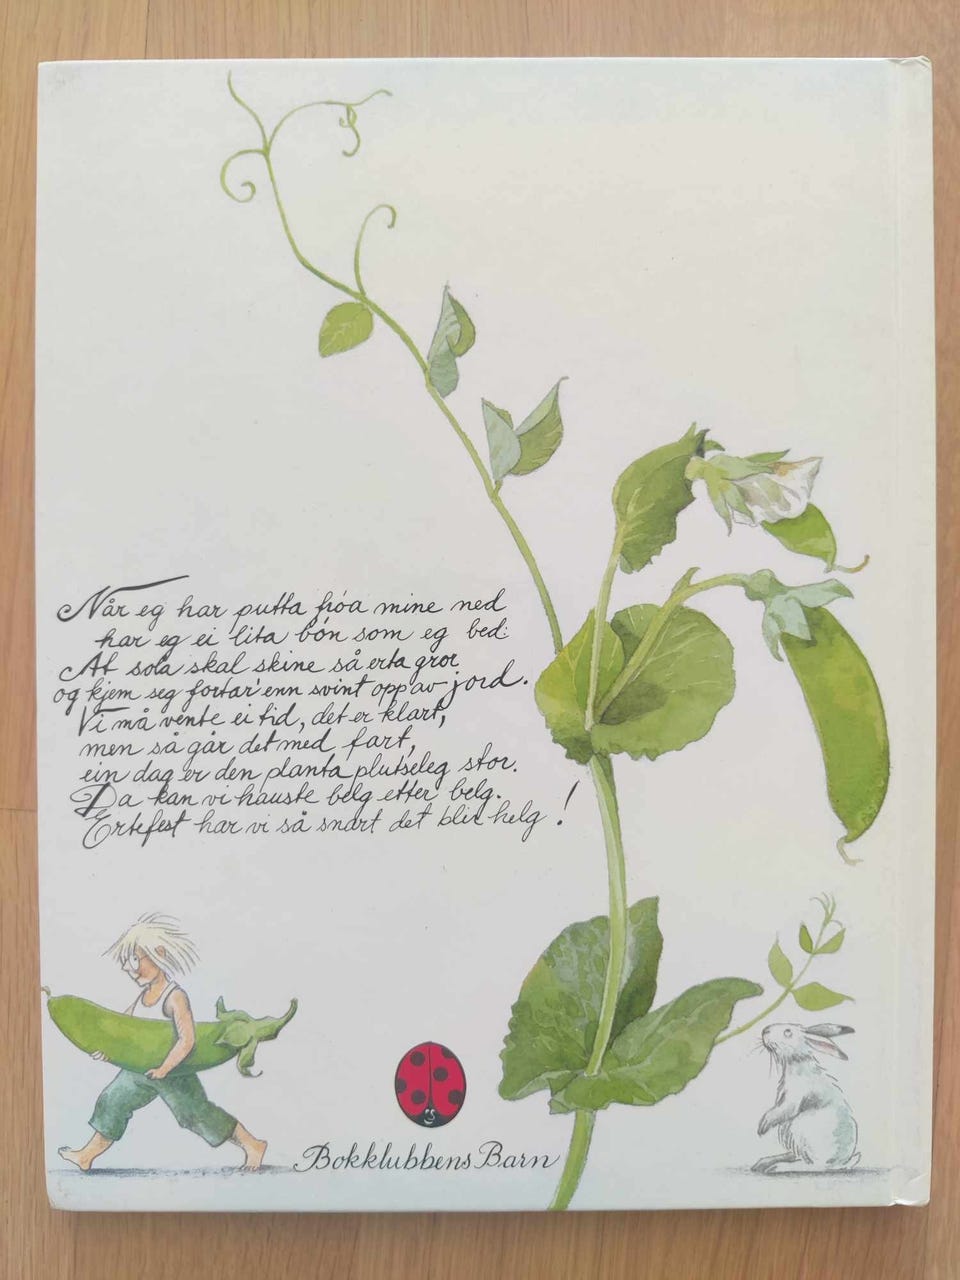 Når eg har putta frøa mine ned
har eg ei lita bón som eg bed:
At sola skal skine så erta gror
og kjem seg fortar' enn svint opp av jord.
Vi må vente ei tid, det er klart,
men så går det med fart,
ein dag er den planta plutseleg stor.
Da kan vi hauste belg etter belg.
Ertefest har vi så snart det blir helg!
Bokklubbens Barn